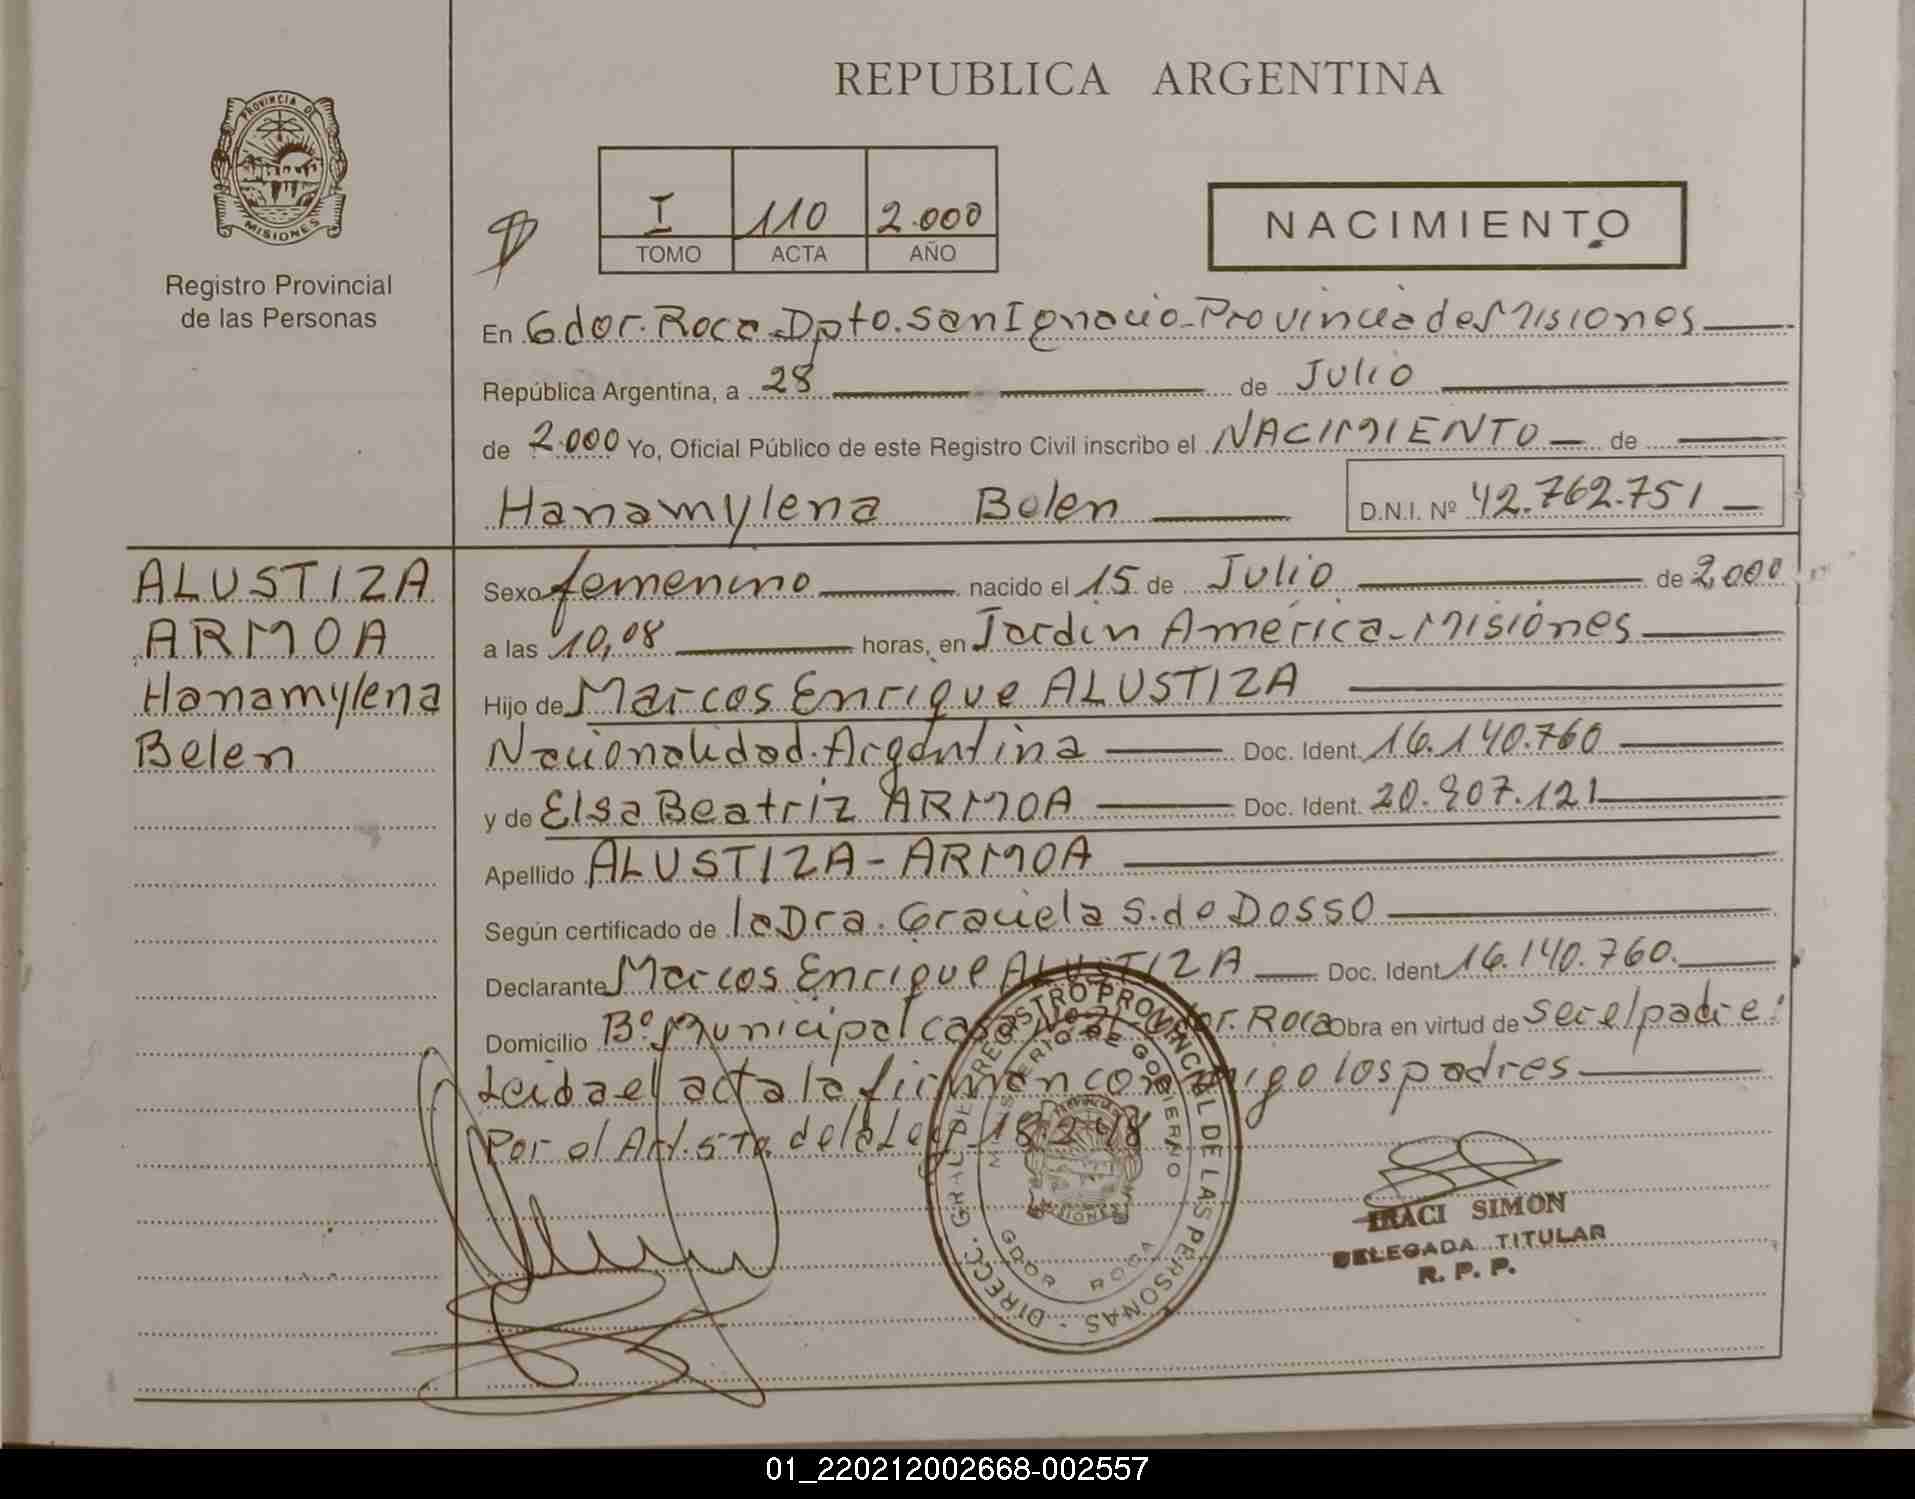 REPUBLICA ARGENTINA
PROVINCIA DE
MISIONES
Registro Provincial
de las Personas
I 110 2.000
TOMO ACTA AÑO
NACIMIENTO
En Gdor. Roca - Dpto. San Ignacio - Provincia de Misiones
República Argentina, a 28 de Julio
de 2.000 Yo, Oficial Público de este Registro Civil inscribo el NACIMIENTO de
Hanamylena Belen D.N.I. Nº 42.762.751
ALUSTIZA
ARMOA
Hanamylena
Belen
Sexo femenino nacido el 15 de Julio de 2,000
a las 10,08 horas, en Jardin América - Misiones
Hijo de Marcos Enrique ALUSTIZA
Nacionalidad Argentina Doc. Ident. 16.140.760
y de Elsa Beatriz ARMOA Doc. Ident. 20.907.121
Apellido ALUSTIZA - ARMOA
Según certificado de la Dra. Graciela S. de Dosso
Declarante Marcos Enrique ALUSTIZA Doc. Ident 16.140.760.
Domicilio Bº Municipal casa Gdor. Roca Obra en virtud de ser el padre:
Leida el acta la firman conmigo los padres
Por el Art. 5to. de la Ley 18.248
DIRECC. GRAL. DEL REGISTRO PROVINCIAL DE LAS PERSONAS -
MINISTERIO DE GOBIERNO
GDOR ROCA
MISIONES
IRACI SIMON
DELEGADA TITULAR
R. P. P.
01_220212002668-002557